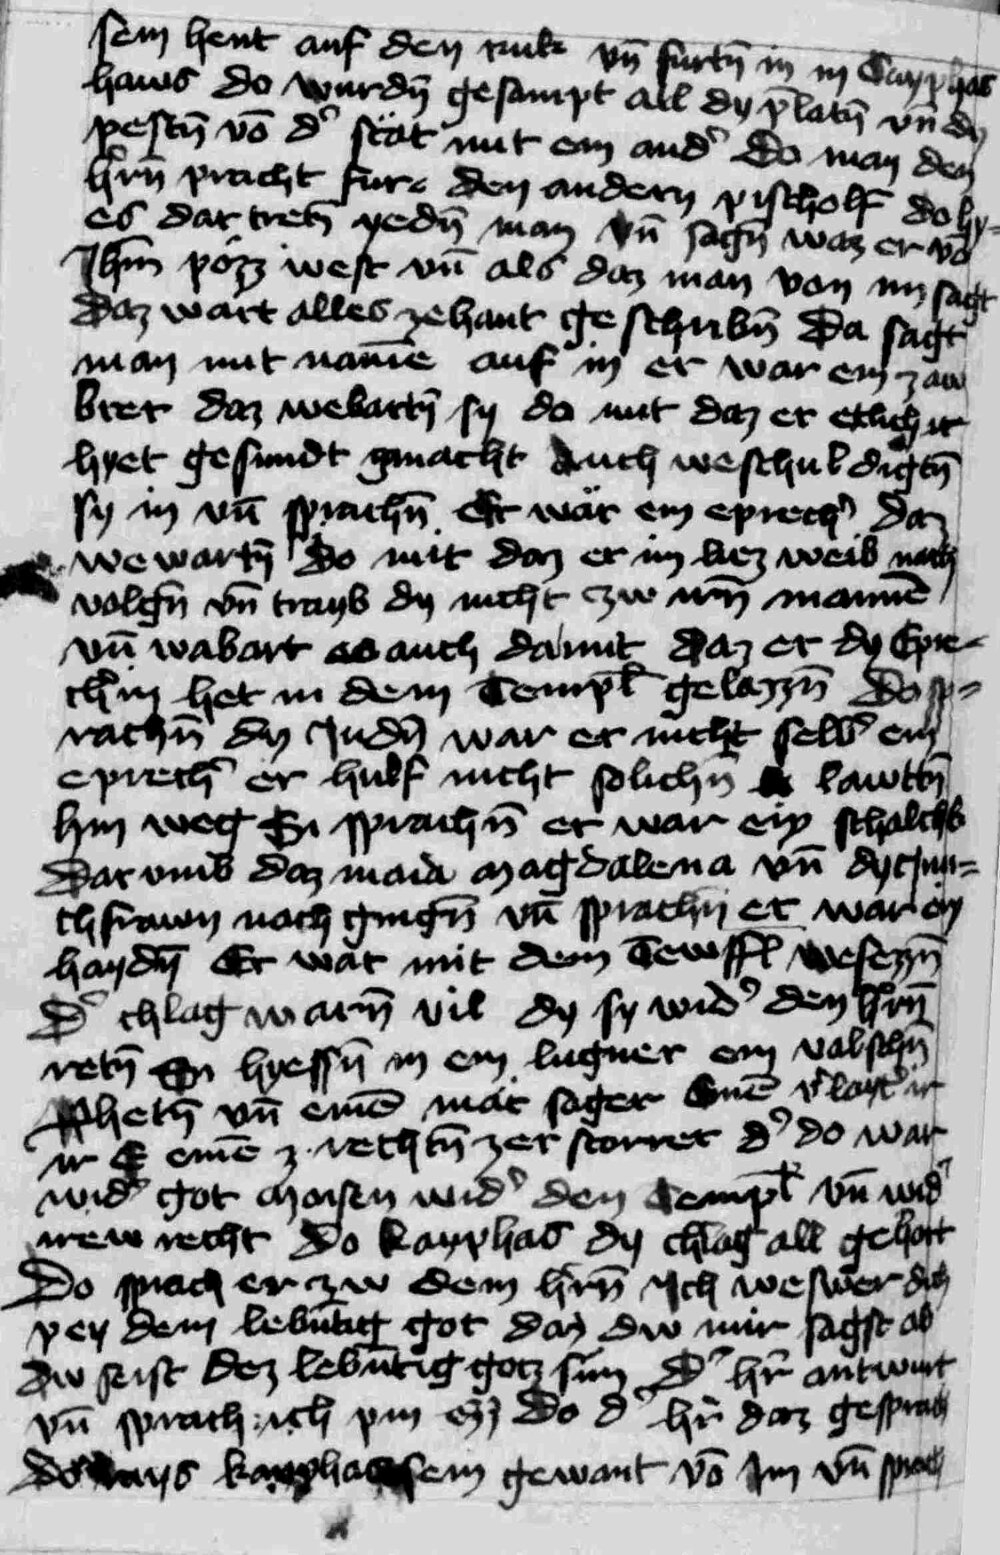 sein hent auf den rukk vn̄ furtn̄ in in Cayphas
haws do wurdn̄ gesampt all dy p̄latn̄ vn̄ dy
pestn̄ vō d' stat mit ein and' Do man den
hr̄n̄ pracht fur den andern pischolf do hy=
es dar tretn̄ yedn̄ man vn̄ sagn̄ waz er vō
Ihm̄ pözz west vn̄ als daz man von im sagt
Daz wart alles zehant geschribn̄ Da sagt
man mit namē auf in er war ein zaw
brer daz webartn̄ sy do mit daz er etlich
hyet gesundt gmacht Auch weschuldigtn̄
sy in vn̄ sprachn̄ Er wär ein eprech' daz
wewartn̄ Do mit daz er im liez weib nach
volgn̄ vn̄ trayb dy nicht zw irn̄ mannē
vn̄ wabart es auch damit daz er dy Epre=
ch'in het in dem Templ̄ gelazzn̄ Do sp=
rachn̄ dy Judn̄ war er nicht selb' ein
eprech' er hulf nicht solichn̄ lawttn̄
hin weg Si sprachn̄ er war ein schalchh
Dar umb daz maria Magdalena vn̄ dy Jun=
chfrawn nach gingn̄ vn̄ sprachn̄ er war ein
haydn̄ Er wär mit dem Tewffl̄ wesezzn̄
D' chlag warn̄ vil dy sy wid' den hr̄n̄
retn̄ Sy hyessn̄ in ein lugner ein valschn̄
Phetn̄ vn̄ einē mär sager Einē v'layt'
ir E einē z'rechtn̄ zerstorrer d' do war
wid' got Moisen wid' den Templ̄ vn̄ wid'
irew recht Do kayphas dy chlag all gehort
Do sprach er zw dem hr̄n̄ Ich weswer dich
pey dem lebn̄tig got daz dw mir sagst ob
dw seist dez lebn̄tig gotz sun D' hr̄ antwurt
vn̄ sprach ich pin ez Do d' hr̄ daz gesprach
Do rays kayphas sein gewant vō Im vn̄ sprach